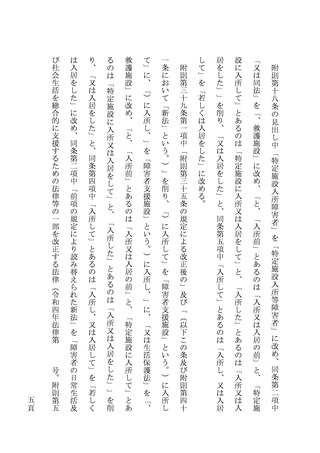 附則第十八条の見出し中「特定施設入所障害者」を「特定施設入所等障害者」に改め、同条第二項中
「又は同法」を「、救護施設」に改め、「と、「入所前」とあるのは「入所又は入居の前」と、「特定施
設に入所して」とあるのは「特定施設に入所又は入居をして」と、「入所した」とあるのは「入所又は入
居をした」」を削り、「又は入居をした」と、同条第五項中「入所して」とあるのは「入所し、又は入居
して」を「若しくは入居をした」に改める。
附則第三十九条第一項中「附則第三十五条の規定による改正後の」及び「（以下この条及び附則第四十
一条において「新法」という。）」を削り、「）に入所して」を「障害者支援施設」という。）に入所し
て」に、「）に入所し、」を「障害者支援施設」という。）に入所し、」に、「又は生活保護法」を「、
救護施設」に改め、「と、「入所前」とあるのは「入所又は入居の前」と、「特定施設に入所して」とあ
るのは「特定施設に入所又は入居をして」と、「入所した」とあるのは「入所又は入居をした」」を削
り、「又は入居をした」と、同条第四項中「入所して」とあるのは「入所し、又は入居して」を「若しく
は入居をした」に改め、同条第二項中「前項の規定により読み替えられた新法」を「障害者の日常生活及
び社会生活を総合的に支援するための法律等の一部を改正する法律（令和四年法律第　　号。附則第五
五頁